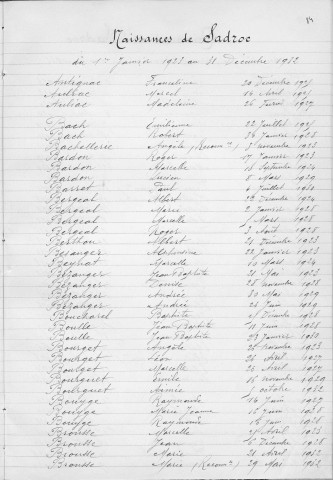 Naissances de Sadroc
du 1er Janvier 1923 au 31 Décembre 1932
Antignac Franceline 30 Décembre 1927
Marcel 16 Avril 1927
Madeleine 26 Février 1927
Bach Emilienne 22 Juillet 1927
Bach Robert 26 Janvier 1928
Bachellerie Angèle (Reconn.ce) 1923
Bardon Roger 17 Janvier 1923
Bardon Marcelle 16 Septembre 1924
Bardon 8 Mars 1929
Barrot Paul 6 Juillet 1930
Bergeal Albert 23 Décembre 1924
Bergeal Marie 2 Janvier 1925
Bergeal Marcelle 7 Mars 1928
Bergeal Roger 3 Août 1928
Berthon Albert 21 Décembre 1923
Besanger Alphonsine 22 Janvier 1923
Marcelle 10 Mars 1924
Béranger Jean Baptiste 21 Mai 1923
Béranger Denise 28 Novembre 1928
Béranger Andrée 30 Mai 1929
Béranger André 28 Juin 1929
Boucharel Baptiste Décembre 1928
Bouille Jean Baptiste 10 Juin 1928
Bouille Jean Baptiste 23 Janvier 1930
Bourget Angèle 25 Novembre 1923
Bourget Léon 26 Avril 1927
Bourget Marcelle 26 Avril 1927
Bourguet Emile 16 Novembre 1929
Bourguet Aimée 1 Octobre 1932
Bouyge Raymonde 16 Juin 1927
Bouyge Marie Jeanne 16 Juin 1928
Bouyge Raymonde 18 Juin 1928
Brousse Marcelle 27 Avril 1923
Brousse Jean 12 Décembre 1928
Brousse Marie 21 Avril 1932
Brousse Marie (Reconn.ce) 29 Mai 1932